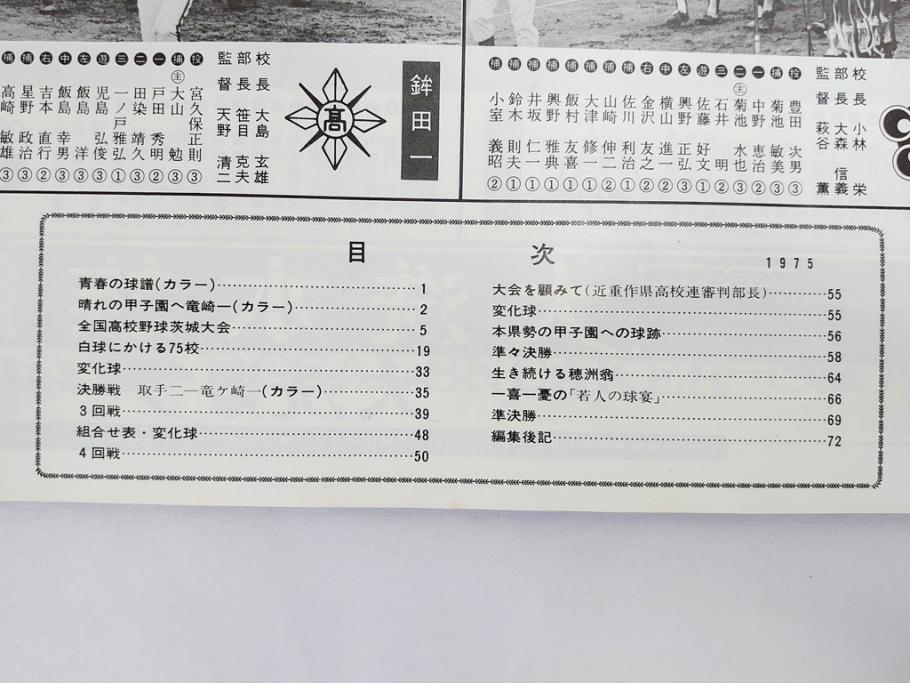 校長 小林 栄
部長 大森 信義
監督 萩谷 薫
投 豊田 次男 ③
捕 菊池 敏美 ③
一 中野 恵治 ②
二 主 菊池 水也 ③
三 石井 明 ②
遊 佐藤 好文 ①
左 興野 正弘 ③
中 横山 進一 ②
右 金沢 友之 ②
補 佐川 利治 ①
補 山崎 伸二 ②
補 大津 修一 ①
補 飯村 友喜 ①
補 興野 雅典 ①
補 井坂 仁一 ①
補 鈴木 則夫 ①
補 小室 義昭 ②
鉾田一
高
校長 大島 玄雄
部長 笹目 克夫
監督 天野 清二
投 宮久保正則 ③
捕 主 大山 勉 ③
一 戸田 秀明 ②
二 田染 靖久 ③
三 一ノ戸雅弘 ①
遊 児島 弘俊 ③
左 飯島 洋 ③
中 飯島 幸男 ③
右 吉本 直行 ②
補 星野 政治 ③
補 高崎 敏雄 ③
目 次
1975
青春の球譜(カラー)……1
晴れの甲子園へ竜崎一(カラー)……2
全国高校野球茨城大会……5
白球にかける75校……19
変化球……33
決勝戦 取手二―竜ケ崎一(カラー)……35
3回戦……39
組合せ表・変化球……48
4回戦……50
大会を顧みて(近重作県高校連審判部長)……55
変化球……55
本県勢の甲子園への球跡……56
準々決勝……58
生き続ける穂洲翁……64
一喜一憂の「若人の球宴」……66
準決勝……69
編集後記……72